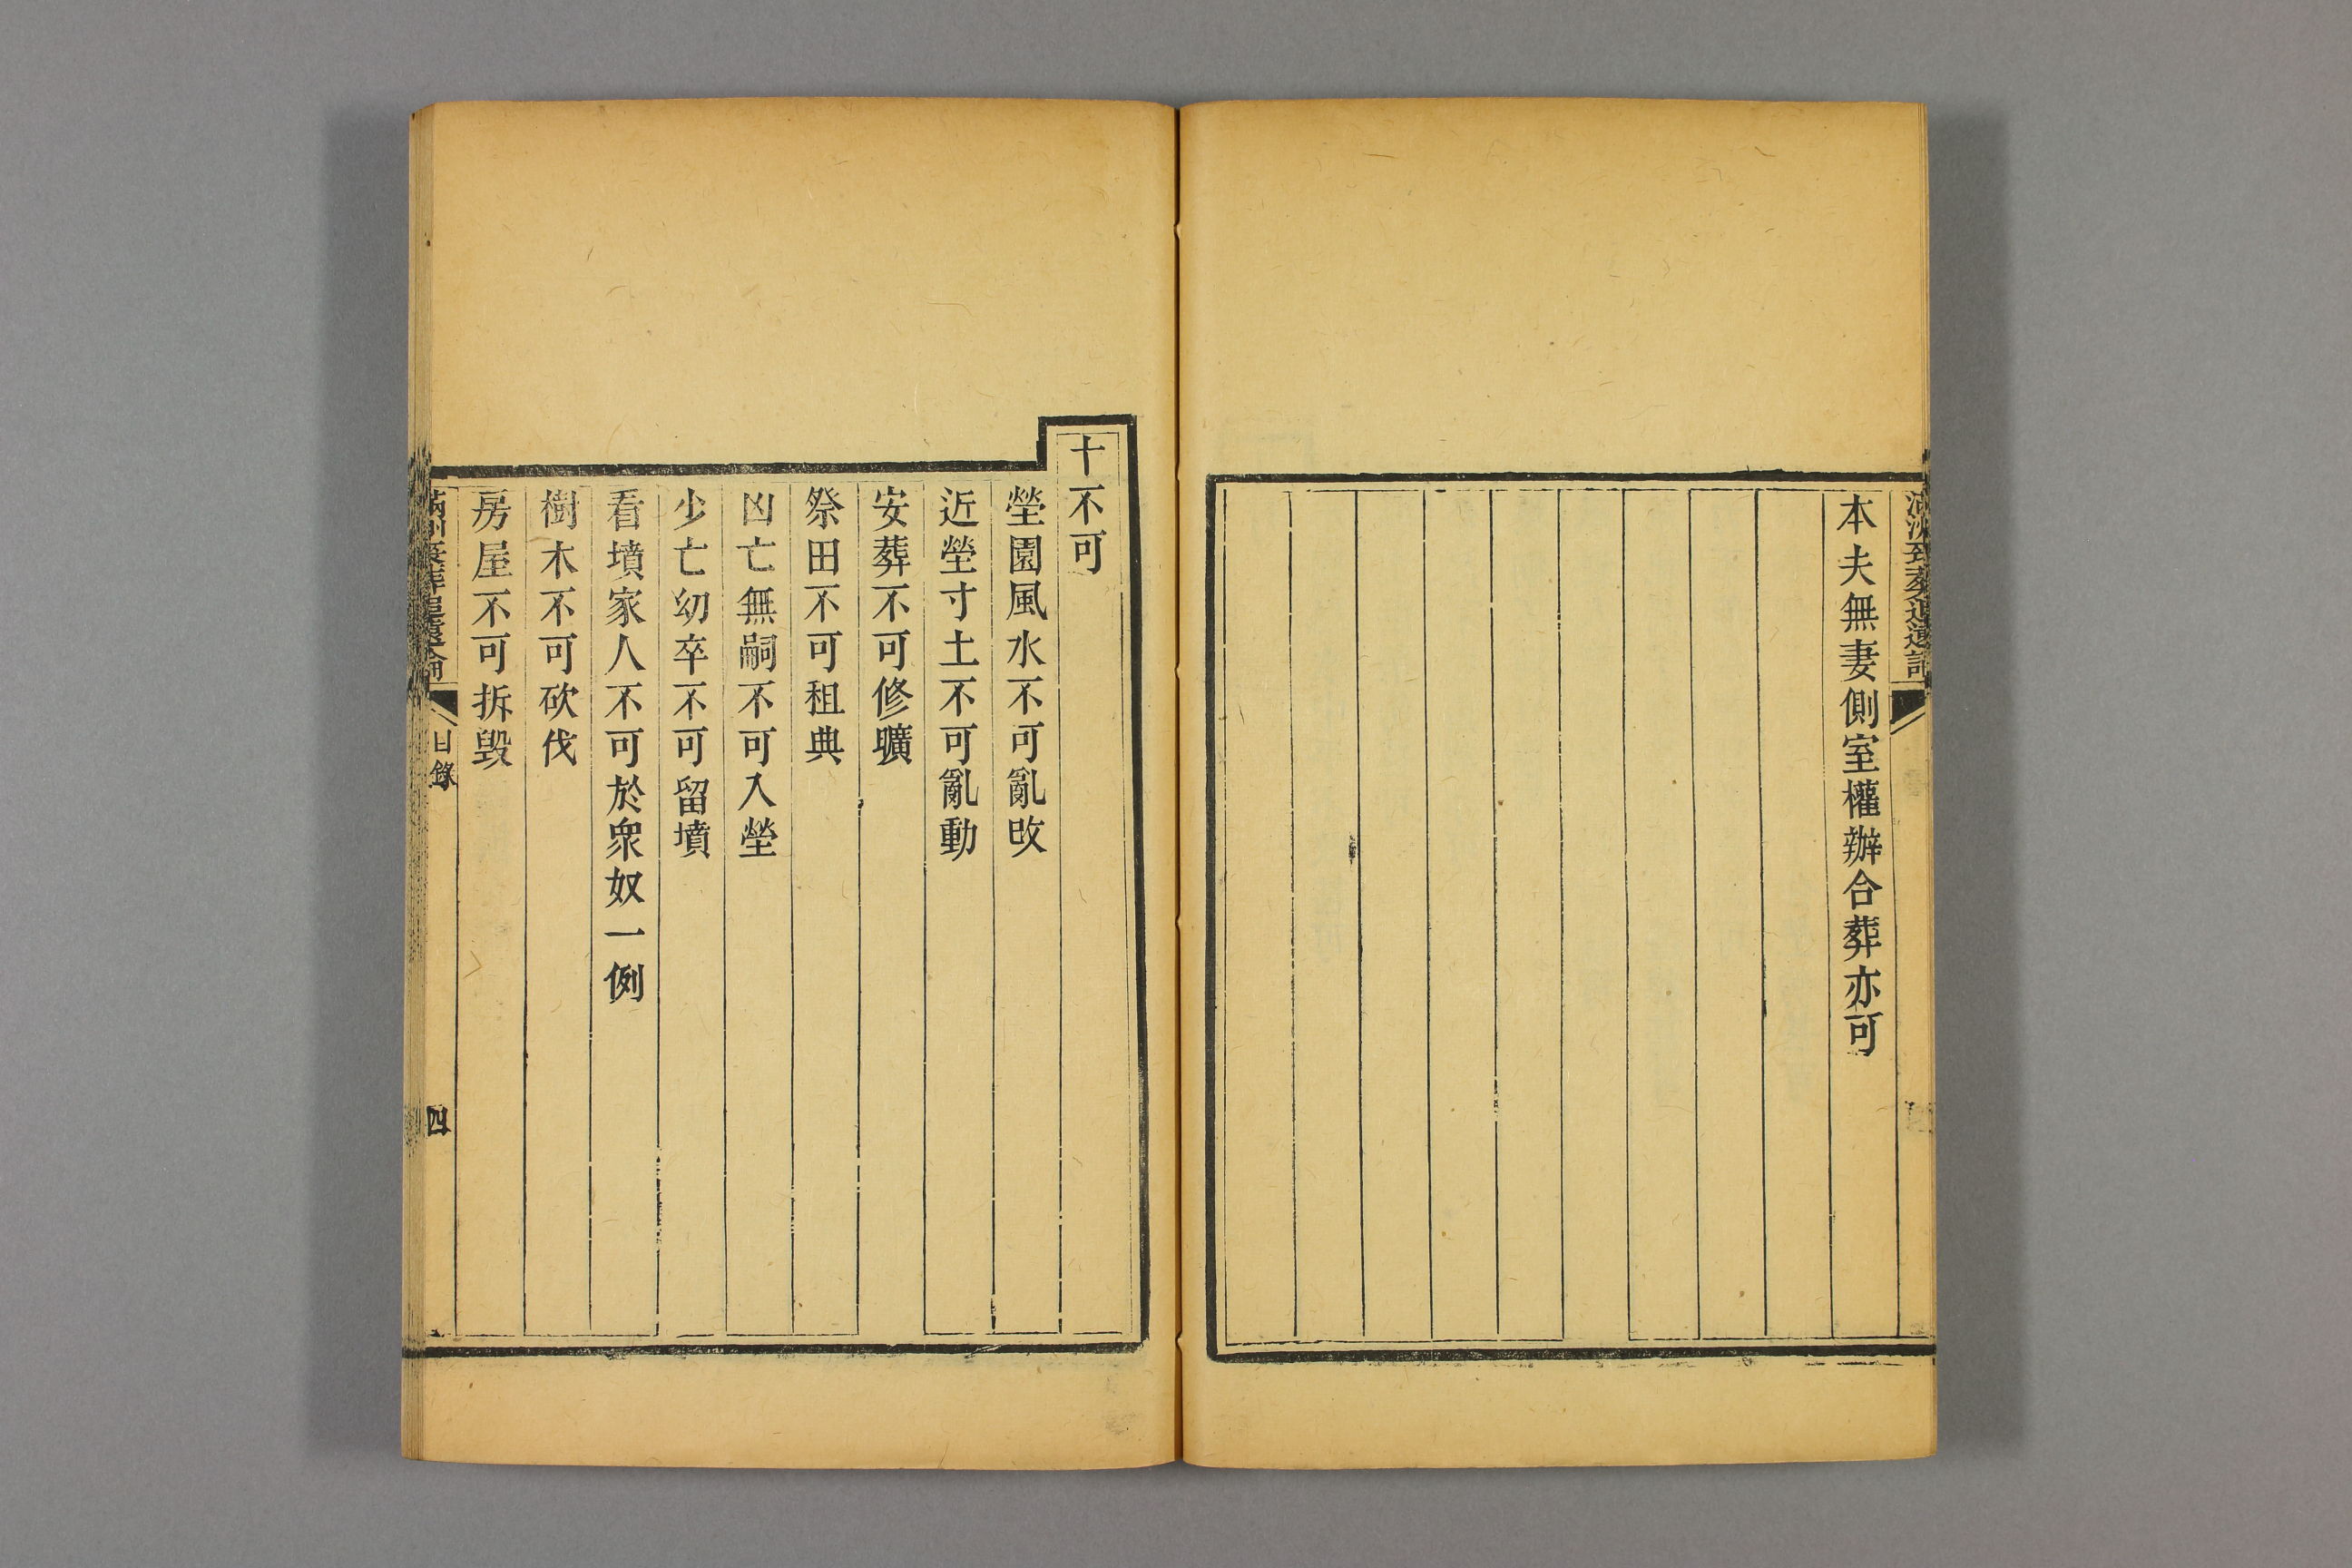 本夫無妻側室權辦合葬亦可
十不可
塋園風水不可亂改
近塋寸土不可亂動
安葬不可修壙
祭田不可租典
凶亡無嗣不可入塋
少亡幼卒不可留墳
看墳家人不可於衆奴一例
樹木不可砍伐
房屋不可拆毀
目錄
四